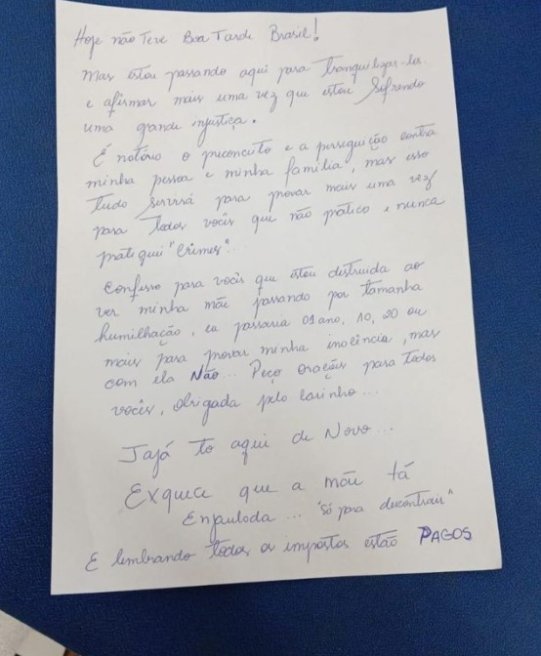 Hoje não Teve Boa Tarde Brasil!
Mas estou passando aqui para Tranquilizar-los
e afirmar mais uma vez que estou Sofrendo
uma grande injustiça.
É notório o preconceito e a perseguição contra
minha pessoa e minha família, mas isso
tudo servirá para provar mais uma vez
para todos vocês que não pratico e nunca
pratiquei "crimes"..
Confesso para vocês que estou destruida ao
ver minha mãe passando por tamanha
humilhação, eu passaria 01 ano, 10, 20 ou
mais para provar minha inocência, mas
com ela Não... Peço orações para todos
vocês, obrigada pelo carinho...
Jajá to aqui de Novo...
Exquece que a mãe tá
Enjaulada... "só para descontrair"
E lembrando todos os impostos estão PAGOS